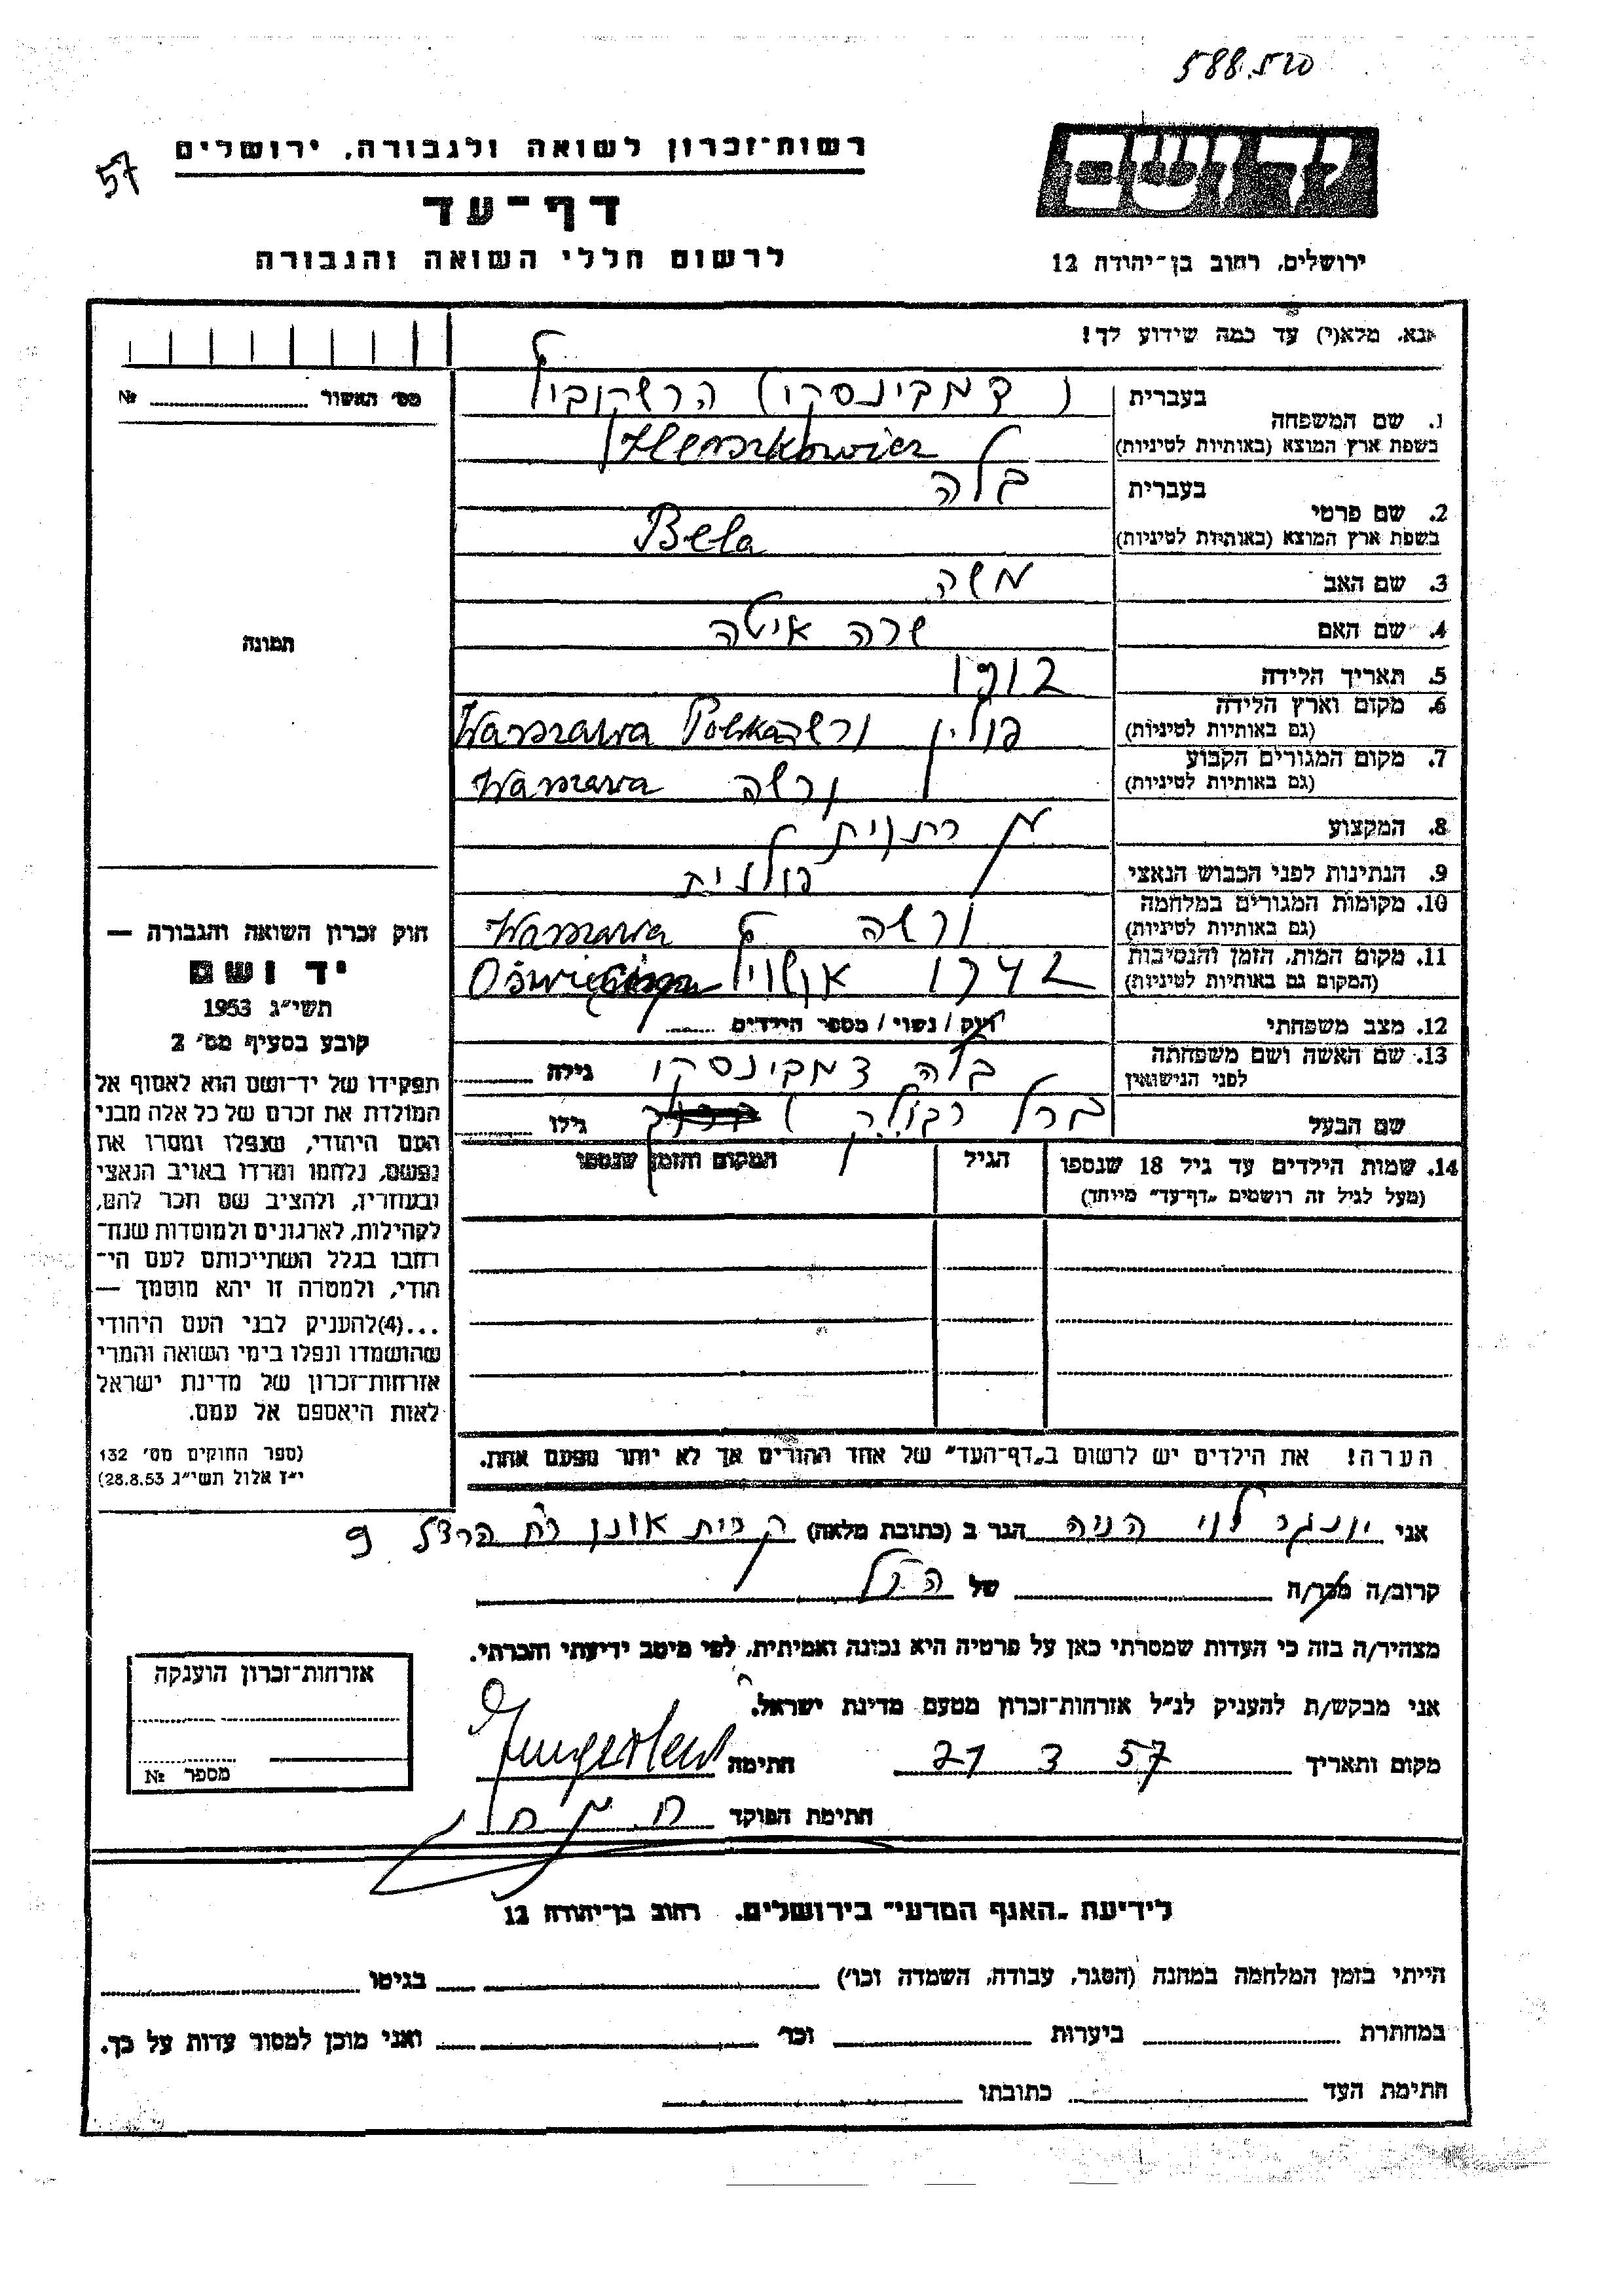 588.520
57
רשות־זכרון לשואה ולגבורה, ירושלים
דף־עד
לרשום חללי השואה והגבורה
יד ושם
ירושלים, רחוב בן־יהודה 12
אנא, מלא(י) עד כמה שידוע לך!
מס׳ האשור № 
1. שם המשפחה בעברית (דמבינסקי) הרשקוביץ
בשפת ארץ המוצא (באותיות לטיניות) Herszkowicz
2. שם פרטי בעברית בלה
בשפת ארץ המוצא (באותיות לטיניות) Bela
3. שם האב משה
4. שם האם שרה איטה
5. תאריך הלידה 1902
6. מקום וארץ הלידה (גם באותיות לטיניות) פולין ורשה Warszawa Polska
7. מקום המגורים הקבוע (גם באותיות לטיניות) ורשה Warszawa
8. המקצוע
9. הנתינות לפני הכבוש הנאצי פולנית
10. מקומות המגורים במלחמה (גם באותיות לטיניות) ורשה Warszawa
11. מקום המות, הזמן והנסיבות (המקום גם באותיות לטיניות) 1942 אושויץ
12. מצב משפחתי רווק / נשוי / מספר הילדים
13. שם האשה ושם משפחתה לפני הנישואין בלה דמבינסקי גילה
שם הבעל ברל גילו
14. שמות הילדים עד גיל 18 שנספו הגיל המקום והזמן שנספו
(מעל לגיל זה רושמים „דף־עד״ מיוחד)
הערה! את הילדים יש לרשום ב„דף־העד״ של אחד ההורים אך לא יותר מפעם אחת.
תמונה
חוק זכרון השואה והגבורה —
יד ושם
תשי״ג 1953
קובע בסעיף מס׳ 2
תפקידו של יד־ושם הוא לאסוף אל
המולדת את זכרם של כל אלה מבני
העם היהודי, שנפלו ומסרו את
נפשם, נלחמו ומרדו באויב הנאצי
ובעוזריו, ולהציב שם וזכר להם,
לקהילות, לארגונים ולמוסדות שנח־
רחבו בגלל השתייכותם לעם הי־
הודי, ולמטרה זו יהא מוסמך —
...(4)להעניק לבני העם היהודי
שהושמדו ונפלו בימי השואה והמרי
אזרחות־זכרון של מדינת ישראל
לאות היאספם אל עמם.
(ספר החוקים מס׳ 132
י״ז אלול תשי״ג 28.8.53)
אני יונגר לוי הניה הגר ב (כתובת מלאה) קרית אונו רח הרצל 9
קרוב/ה מכר/ה של
מצהיר/ה בזה כי העדות שמסרתי כאן על פרטיה היא נכונה ואמיתית, לפי מיטב ידיעתי והכרתי.
אני מבקש/ת להעניק לנ״ל אזרחות־זכרון מטעם מדינת ישראל.
מקום ותאריך 21 3 57 חתימה
חתימת הפוקד
אזרחות־זכרון הוענקה
מספר №
לידיעת „האגף המדעי״ בירושלים, רחוב בן־יהודה 12
הייתי בזמן המלחמה במחנה (הסגר, עבודה, השמדה וכו׳) בגיטו
במחתרת ביערות וכו׳ ואני מוכן למסור עדות על כך.
חתימת העד כתובתו